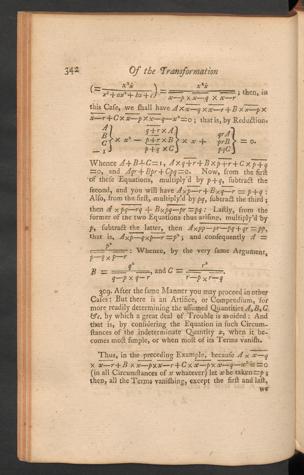 342 Of the Transformation
(= x²ẋ / x³+ax²+bx+c) = x²ẋ / x—p × x—q × x—r; then, in
this Case, we shall have A×x—q×x—r+B×x—p×
x—r+C×x—p×x—q—x²=0; that is, by Reduction,
A
B
C
—1 } × x² — { q+r×A
p+r×B
p+q×C } × x + { qrA
prB
pqC } = 0.
Whence A+B+C=1, A×q+r+B×p+r+C×p+q
=0, and Aqr+Bpr+Cpq=0. Now, from the first
of these Equations, multiply'd by p+q, subtract the
second, and you will have A×p—r+B×q—r=p+q:
Also, from the first, multiply'd by pq, subtract the third;
then A×pq—rq+B×pq—pr=pq: Lastly, from the
former of the two Equations thus arising, multiply'd by
p, subtract the latter, then A×pp—pr—pq+qr=pp,
that is, A×p—q×p—r=p²; and consequently A =
p² / p—q×p—r: Whence, by the very same Argument,
B = q² / q—p×q—r, and C = r² / r—p×r—q.
309. After the same Manner you may proceed in other
Cases: But there is an Artifice, or Compendium, for
more readily determining the assumed Quantities A, B, C,
&c. by which a great deal of Trouble is avoided: And
that is, by considering the Equation in such Circum-
stances of the indeterminate Quantity x, when it be-
comes most simple, or when most of its Terms vanish.
Thus, in the preceding Example, because A × x—q
× x—r+B×x—p×x—r+C×x—p×x—q—x²=0
(in all Circumstances of x whatever) let x be taken=p;
then, all the Terms vanishing, except the first and last,
we